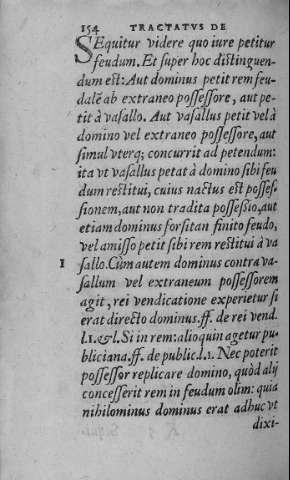 154 TRACTATVS DE
SEquitur videre quo iure petitur
feudum. Et super hoc distinguen-
dum est: Aut dominus petit rem feu-
dalē ab extraneo possessore, aut pe-
tit à vasallo. Aut vasallus petit vel à
domino vel extraneo possessore, aut
simul vterq; concurrit ad petendum:
ita vt vasallus petat à domino sibi feu
dum restitui, cuius nactus est posses-
sionem, aut non tradita possessio, aut
etiam dominus forsitan finito feudo,
vel amisso petit sibi rem restitui à va
1 sallo. Cùm autem dominus contra va-
sallum vel extraneum possessorem
agit, rei vendicatione experietur si
erat directo dominus. ff. de rei vend.
l.1. & l. Si in rem: alioquin agetur pu-
bliciana. ff. de public. l.1. Nec poterit
possessor replicare domino, quòd alij
concesserit rem in feudum olim: quia
nihilominus dominus erat adhuc vt
dixi-